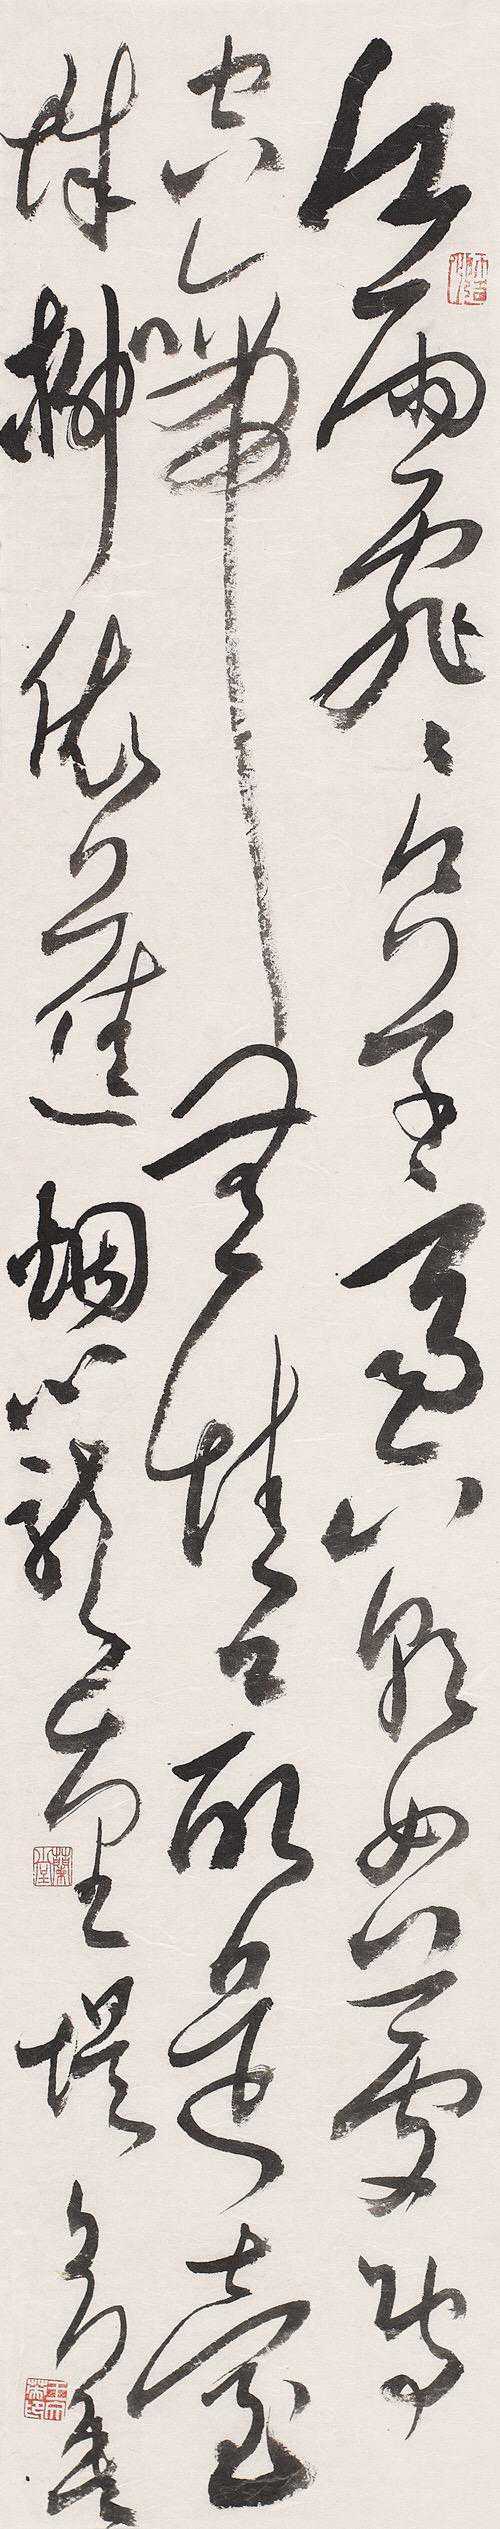 江雨霏霏江草齊六朝如夢鳥
空啼無情最是臺
城柳依舊烟籠十里堤